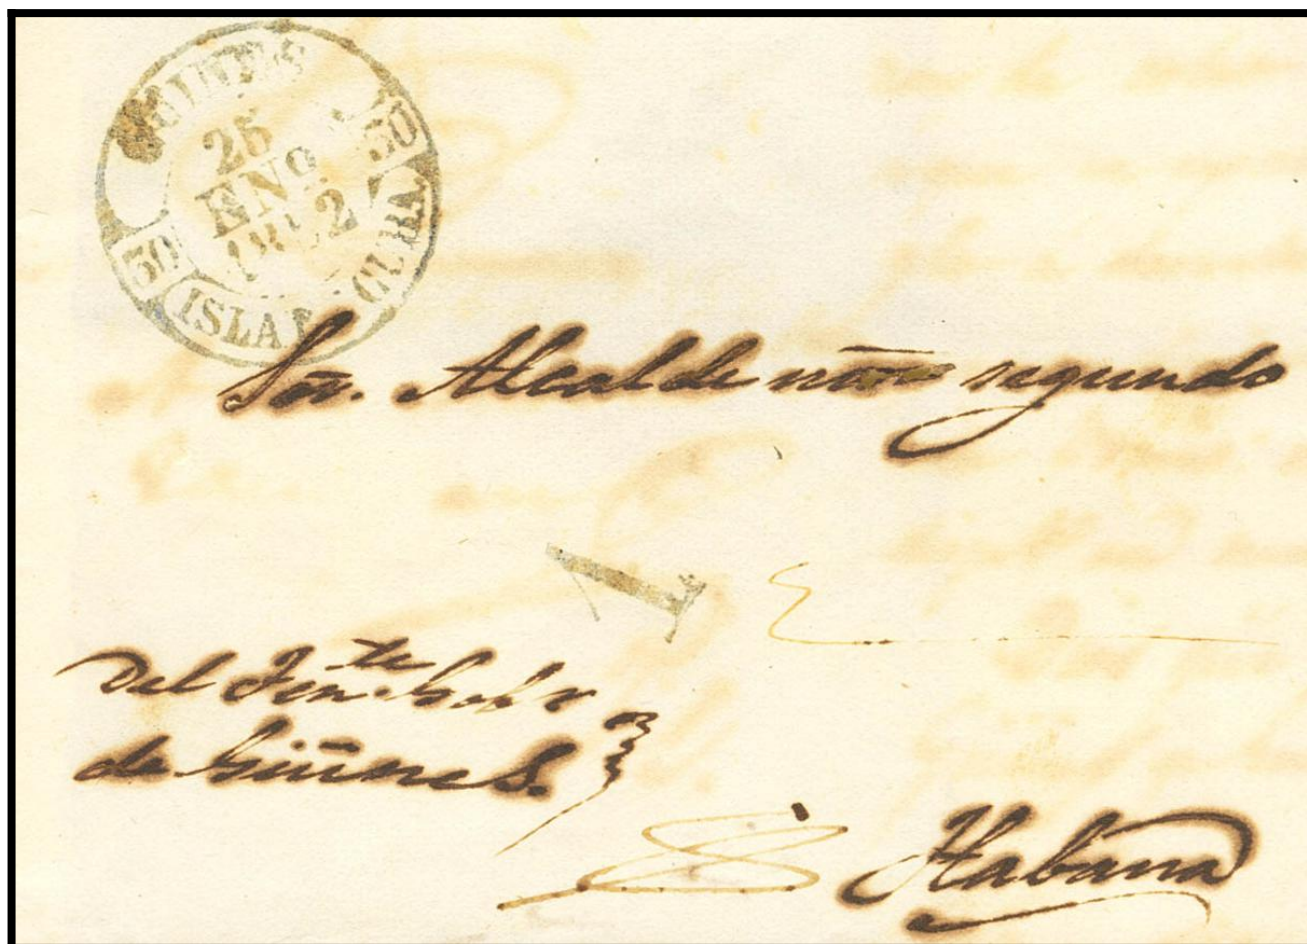 GUINES
25
ENO
30
30
ISLA
CUBA
Sor. Alcalde mor segundo
1
Del Ten.te Gobr
de Güines.
Habana